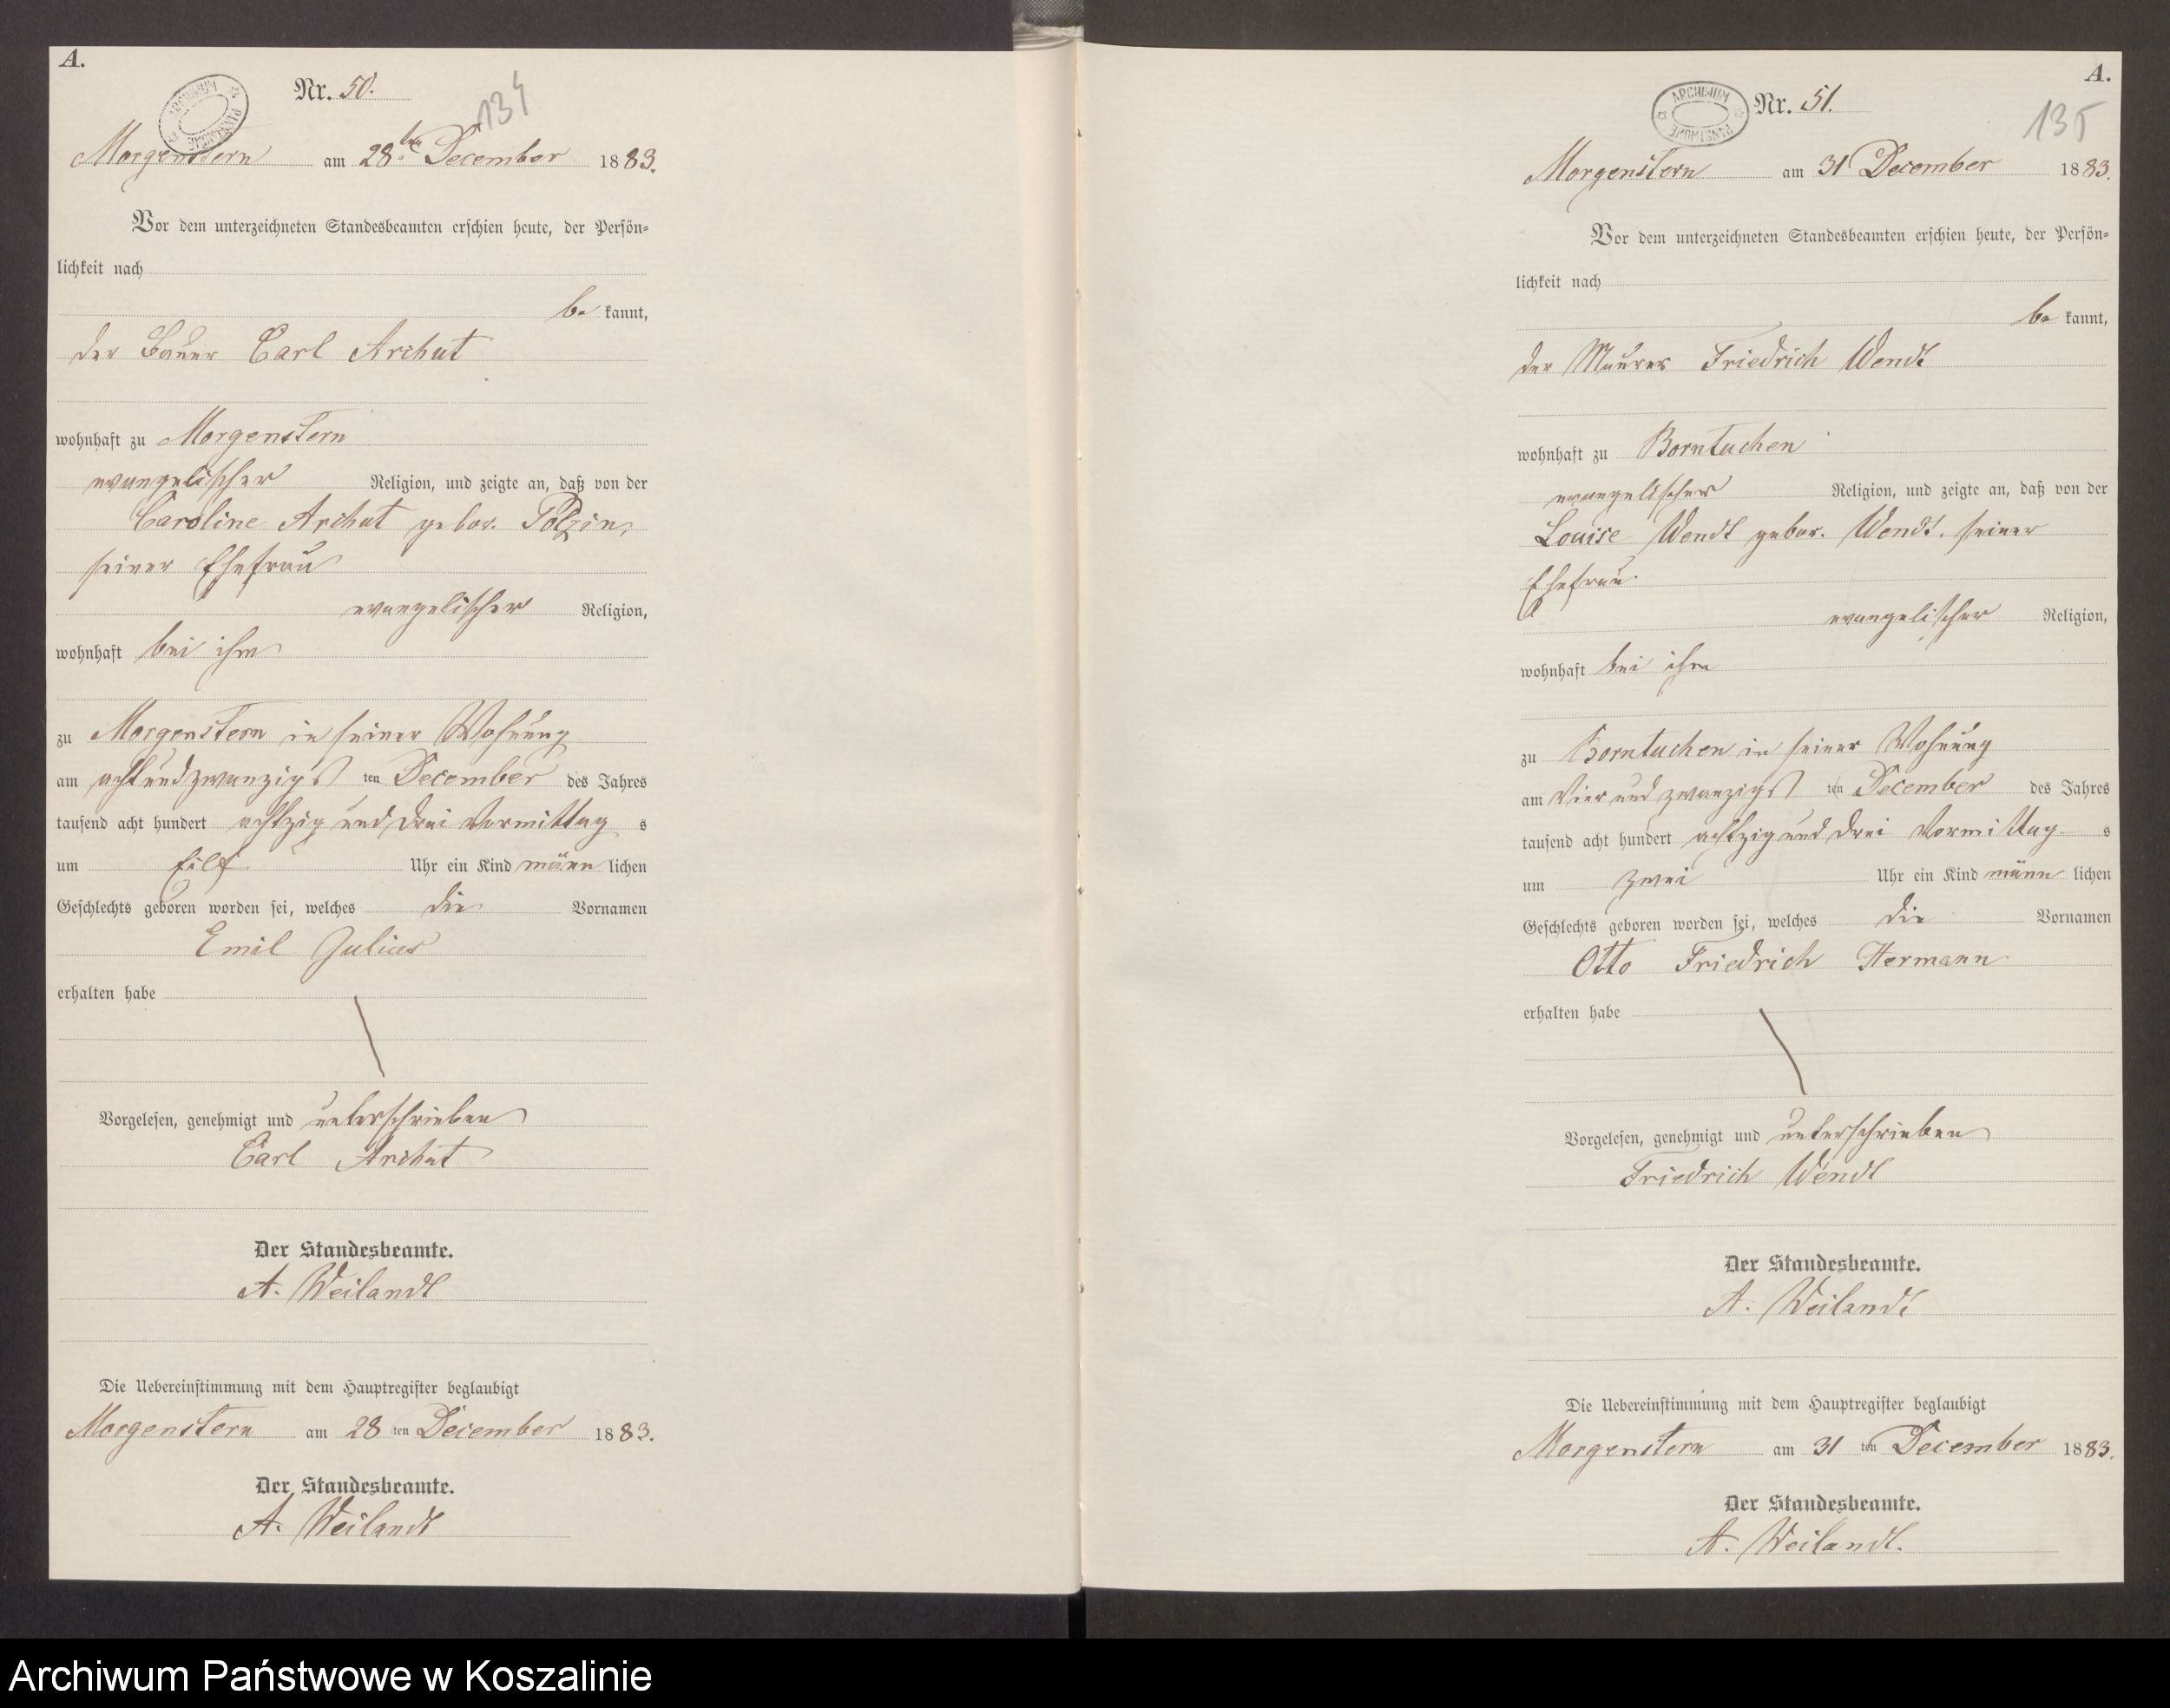 A.
Nr. 50.
134
ARCHIWUM PAŃSTWOWE
Morgenstern am 28ten December 1883.
Vor dem unterzeichneten Standesbeamten erschien heute, der Persön-
lichkeit nach
be kannt,
der Bauer Carl Archut
wohnhaft zu Morgenstern
evangelischer Religion, und zeigte an, daß von der
Caroline Archut gebor. Polzin,
seiner Ehefrau
evangelischer Religion,
wohnhaft bei ihm
zu Morgenstern in seiner Wohnung
am achtundzwanzigsten December des Jahres
tausend acht hundert achtzig und drei Vormittags
um Eilf Uhr ein Kind männlichen
Geschlechts geboren worden sei, welches die Vornamen
Emil Julius
erhalten habe
Vorgelesen, genehmigt und unterschrieben
Carl Archut
Der Standesbeamte.
A. Weilandt
Die Uebereinstimmung mit dem Hauptregister beglaubigt
Morgenstern am 28 ten December 1883.
Der Standesbeamte.
A. Weilandt
A.
Nr. 51.
135
ARCHIWUM PAŃSTWOWE
Morgenstern am 31 December 1883.
Vor dem unterzeichneten Standesbeamten erschien heute, der Persön-
lichkeit nach
be kannt,
der Maurer Friedrich Wendt
wohnhaft zu Borntuchen
evangelischer Religion, und zeigte an, daß von der
Louise Wendt gebor. Wendt, seiner
Ehefrau.
evangelischer Religion,
wohnhaft bei ihm
zu Borntuchen in seiner Wohnung
am vier und zwanzigsten December des Jahres
tausend acht hundert achtzig und drei Vormittags
um zwei Uhr ein Kind männlichen
Geschlechts geboren worden sei, welches die Vornamen
Otto Friedrich Hermann
erhalten habe
Vorgelesen, genehmigt und unterschrieben
Friedrich Wendt
Der Standesbeamte.
A. Weilandt
Die Uebereinstimmung mit dem Hauptregister beglaubigt
Morgenstern am 31 ten December 1883.
Der Standesbeamte.
A. Weilandt.
Archiwum Państwowe w Koszalinie